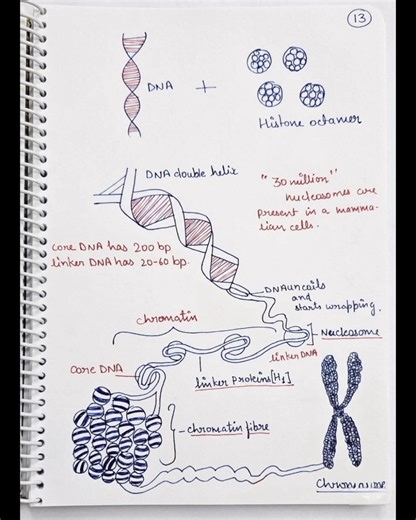 13
DNA
+
Histone octamer
DNA double helix
"30 million"
nucleosomes are
present in a mamma-
lian cells.
core DNA has 200 bp
linker DNA has 20-60 bp.
DNA uncoils
and
starts wrapping.
chromatin
Nucleosome
linker DNA
Core DNA
linker proteins [H₁]
chromatin fibre
Chromosome